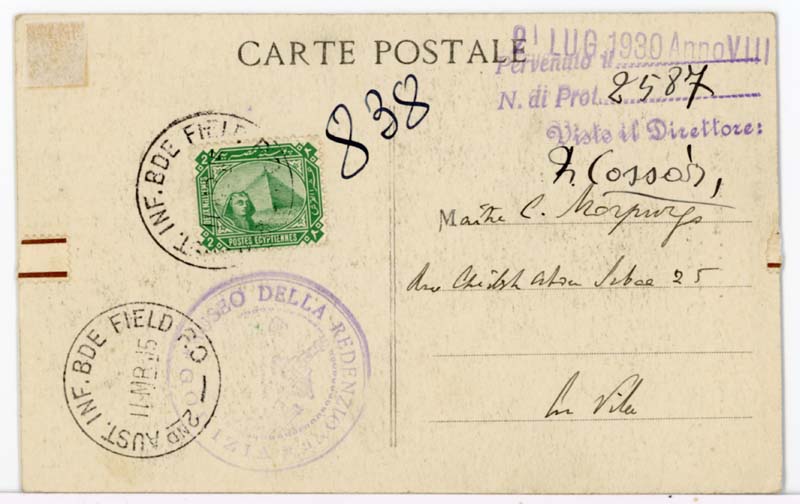 CARTE POSTALE
21 LUG 1930 Anno VIII
Pervenuto il
N. di Prot. 2587
Visto il Direttore:
838
Cossàr,
Maître C. Morpurgo
25
En Ville
2ND AUST. INF. BDE FIELD P.O
POSTES EGYPTIENNES
2 2
2ND AUST. INF. BDE FIELD P.O
11 MR 15
MUSEO DELLA REDENZIONE
GORIZIA